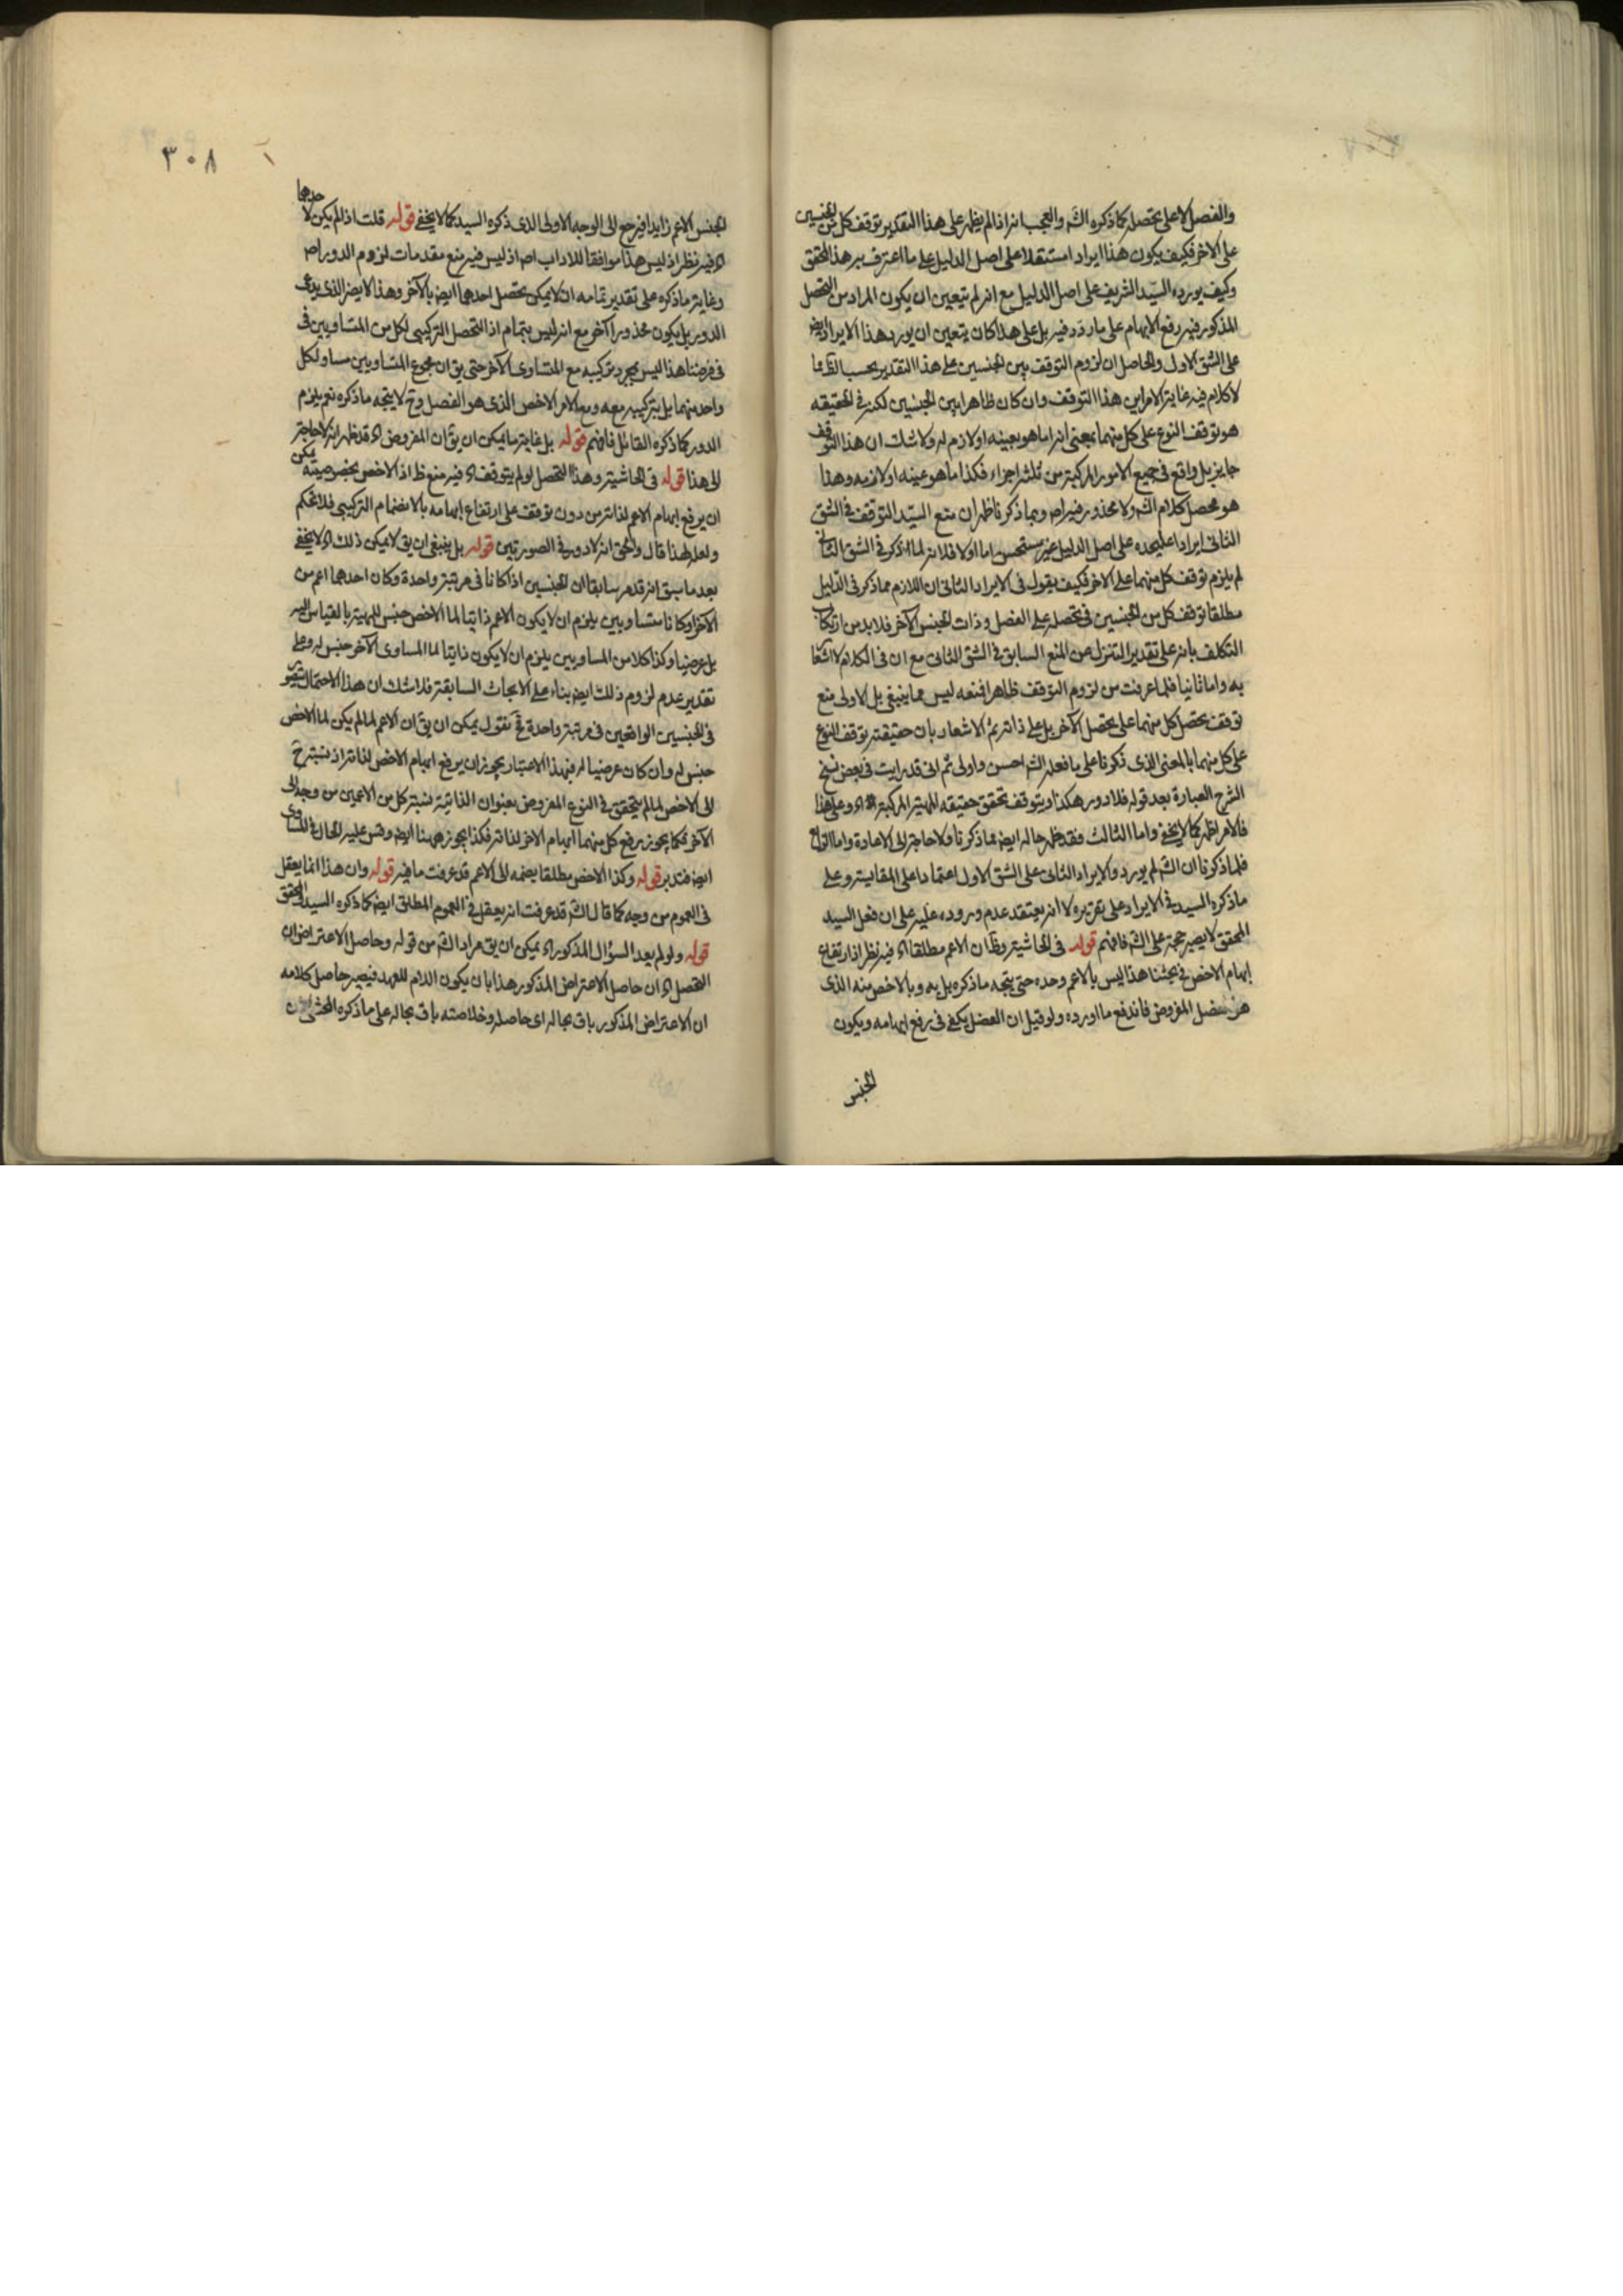 والفصل لا على تحصله كما ذكره الش والعجب انه اذا لم يظهر على هذا التقدير توقف كل من الجنسين
على الاخر فكيف يكون هذا ايراد استقلا على اصل الدليل على ما اعترف به هذا المحقق
وكيف يورده السيد الشريف على اصل الدليل مع انه لم يتعين ان يكون المراد من التحصل
المذكور فيه رفع الابهام على ما ردد فيه بل على هذا كان يتعين ان يورد هذا الايراد ايض
على الشق الاول والحاصل ان لزوم التوقف بين الجنسين على هذا التقدير بحسب الظ مما
لا كلام فيه غاية الامر ان هذا التوقف وان كان ظاهرا بين الجنسين لكنه في الحقيقه
هو توقف النوع على كل منهما بمعنى انه اما هو بعينه او لازم له ولا شك ان هذا التوقف
جايز بل واقع في جميع الامور المركبة من ثلثه اجزاء فكذا ما هو عينه او لازمه وهذا
هو محصل كلام الش ولا محذور فيه اصلا وبما ذكرنا ظهر ان منع السيد التوقف في الشق
الثاني ايرادا عليحده على اصل الدليل غير مستحسن اما اولا فلانه لما ذكر في الشق الثاني
لم يلزم توقف كل منهما على الاخر فكيف يقول في الايراد الثاني ان اللازم مما ذكر في الدليل
مطلقا توقف كل من الجنسين في تحصله على الفصل وذات الجنس الآخر فلا بد من ارتكاب
التكلف بانه على تقدير التنزل عن المنع السابق في الشق الثاني مع ان في الكلام لا اشعا
به واما ثانيا فلما عرفت من لزوم التوقف ظاهرا فمنعه ليس مما ينبغي بل الاولى منع
توقف تحصل كل منهما على تحصل الآخر بل على ذاته ثم الاشعار بان حقيقته توقف النوع
على كل منهما بالمعنى الذي ذكرنا على ما فعله الش احسن واولى ثم انى قد رايت في بعض نسخ
الشرح العبارة بعد قوله فلا دور هكذا ويتوقف تحقق حقيقه المهية المركبة اه وعلى هذا
فالامر اظهر كما لا يخفى واما الثالث فقد ظهر حاله ايض مما ذكرنا ولا حاجة الى الاعادة واما الرابع
فلما ذكرنا ان الش لم يورد الايراد الثاني على الشق الاول اعتمادا على المقايسة وعلى
ما ذكره السيد في الايراد على تقريره لا انه يعتقد عدم وروده عليه على ان فعل السيد
المحقق لا يصير حجة على الش فافهم قوله في الحاشية وظ ان الاعم مطلقا اه فيه نظر اذ ارتفاع
ابهام الاخص في بحثنا هذا ليس بالاعم وحده حتى يتجه ما ذكره بل به وبالاخص منه الذي
هو فصل المفروض فاندفع ما اورده ولو قيل ان الفصل يكفي في رفع ابهامه ويكون
الجنس
٣٠٨
الجنس الاعم زايدا فيرجع الى الوجه الاولى الذي ذكره السيد كما لا يخفى قوله قلت اذا لم يكن لاحدهما
اه فيه نظر اذ ليس هذا موافقا للاداب اصلا اذ ليس فيه منع مقدمات لزوم الدور اصلا
وغاية ما ذكره على تقدير تمامه ان لا يمكن تحصل احدهما ايض بالآخر وهذا لا يضر الذي يدعى
الدور بل يكون محذورا آخر مع انه ليس بتمام اذ التحصل التركيبى لكل من المتساويين في
فرضنا هذا ليس بمجرد تركيبه مع المتساوى الآخر حتى يق ان مجموع المتساويين مساو لكل
واحد منهما بل بتركيبه معه ومع الامر الاخص الذي هو الفصل وح لا يتجه ما ذكره نعم يلزم
الدور كما ذكره القائل فافهم قوله بل غاية ما يمكن ان يق ان المفروض اه قد ظهر انه لا حاجة
الى هذا قوله في الحاشية وهذا التحصل لو لم يتوقف اه فيه منع ظ اذ الاخص بخصوصيته يمكن
ان يرفع ابهام الاعم لذاته من دون توقف على ارتفاع ابهامه بالانضمام التركيبى فلا تحكم
ولعله لهذا قال والحق انه لا دور في الصورتين قوله بل ينبغي ان يق لا يمكن ذلك اه لا يخفى
بعد ما سبق انه قد مر سابقا ان الجنسين اذا كانا في مرتبة واحدة وكان احدهما اعم من
الآخر او كانا متساويين يلزم ان لا يكون الاعم ذاتيا لما الاخص جنس للمهية بالقياس اليه
بل عرضيا وكذا كلا من المساويين يلزم ان لا يكون ذاتيا لما المساوى الآخر جنس له وعلى
تقدير عدم لزوم ذلك ايض بناء على الابحاث السابقة فلا شك ان هذا الاحتمال يتصور
في الجنسين الواقعين في مرتبة واحدة فح نقول يمكن ان يق ان الاعم لما لم يكن لما الاخص
جنس له وان كان عرضيا له فبهذا الاعتبار يجوز ان يرفع ابهام الاخص لذاته اذ نسبته ح
الى الاخص لما لم يتحقق في النوع المفروض بعنوان الذاتية نسبة كل من الاعمين من وجه الى
الآخر فكما يجوز رفع كل منهما ابهام الاخر لذاته فكذا يجوز ههنا ايض وقس عليه الحال في المساوى
ايض فتدبر قوله وكذا الاخص مطلقا يضمه الى الاعم قد عرفت ما فيه قوله وان هذا انما يعقل
في العموم من وجه كما قال الش قد عرفت انه يعقل في العموم المطلق ايض كما ذكره السيد المحقق
قوله ولو لم يعد السؤال المذكور اه يمكن ان يق مراد الش من قوله وحاصل الاعتراض ان
التحصل اه ان حاصل الاعتراض المذكور هذا بان يكون اللام للعهد فيصير حاصل كلامه
ان الاعتراض المذكور باق بحاله اى حاصله وخلاصته باق بحاله على ما ذكره المحشى